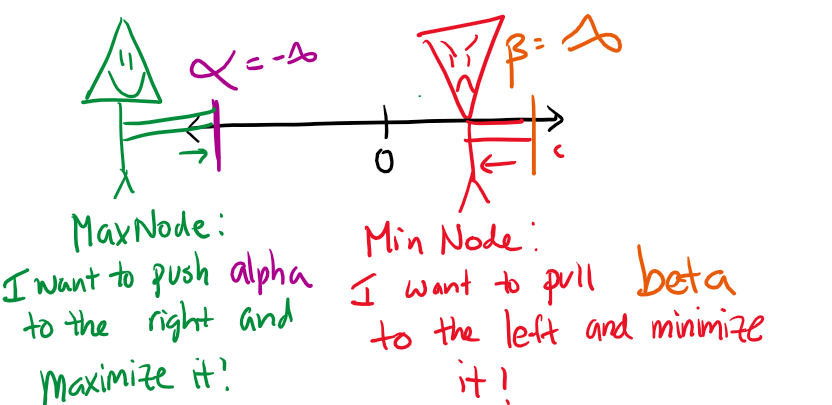 α = -∞
β = ∞
0
c
Max Node:
I want to push alpha
to the right and
Maximize it!
Min Node:
I want to pull beta
to the left and minimize
it!